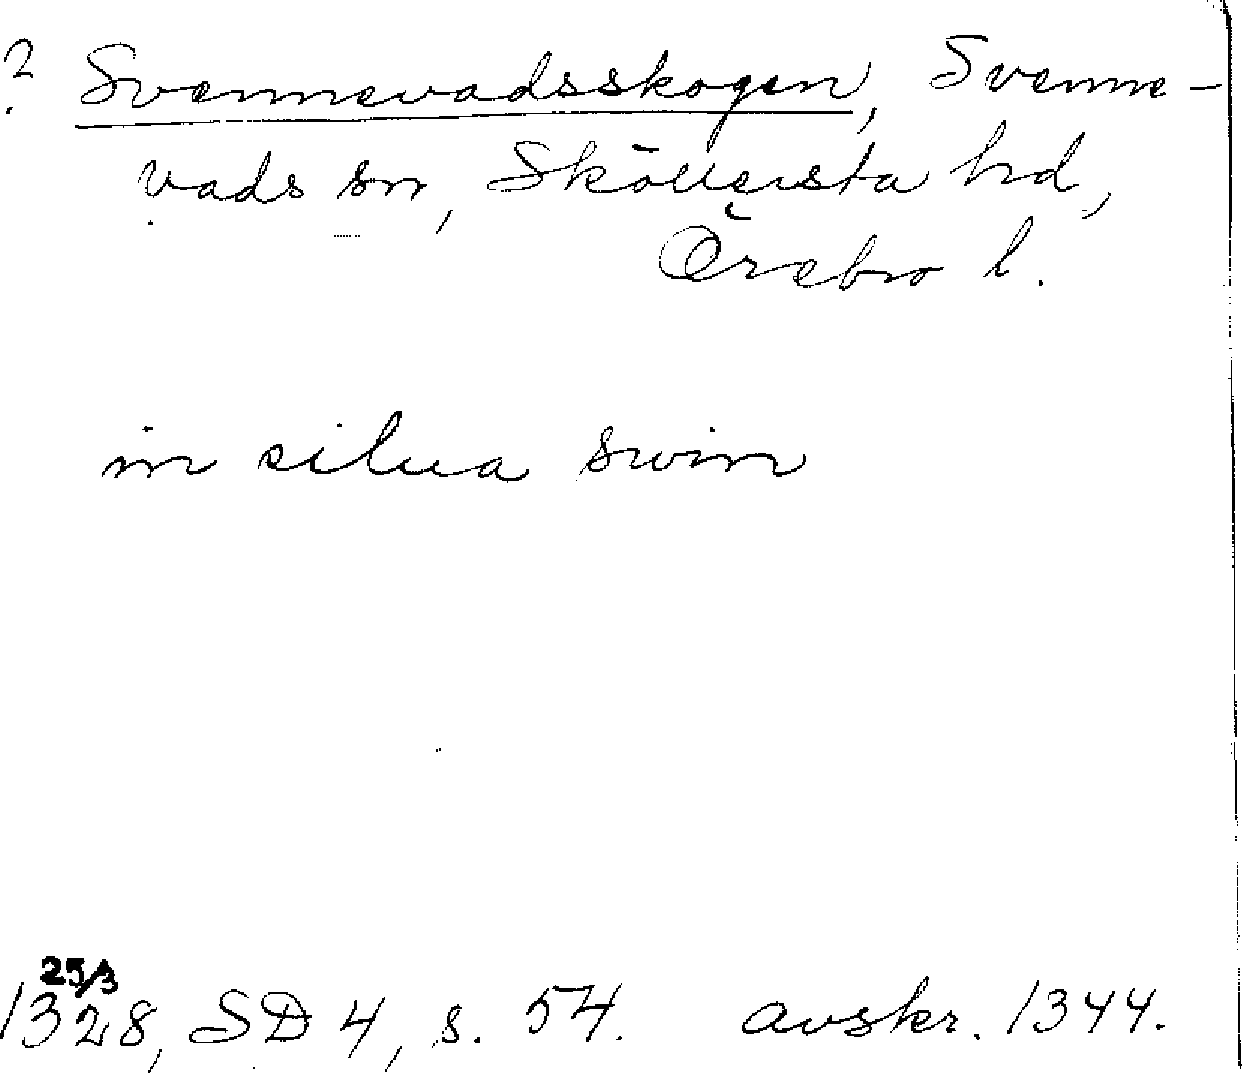 ? Svennevadsskogen, Svenne-
vads sn, Sköllersta hd,
Örebro l.
in silua swin
25/3
1328, SD 4, s. 54. avskr. 1344.